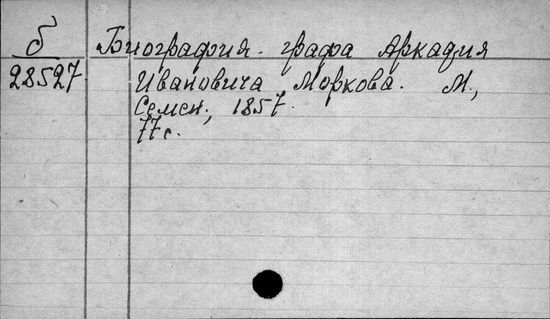 б
28527
Биография графа Аркадия
Ивановича Моркова. М.,
Семен, 1857.
77 с.